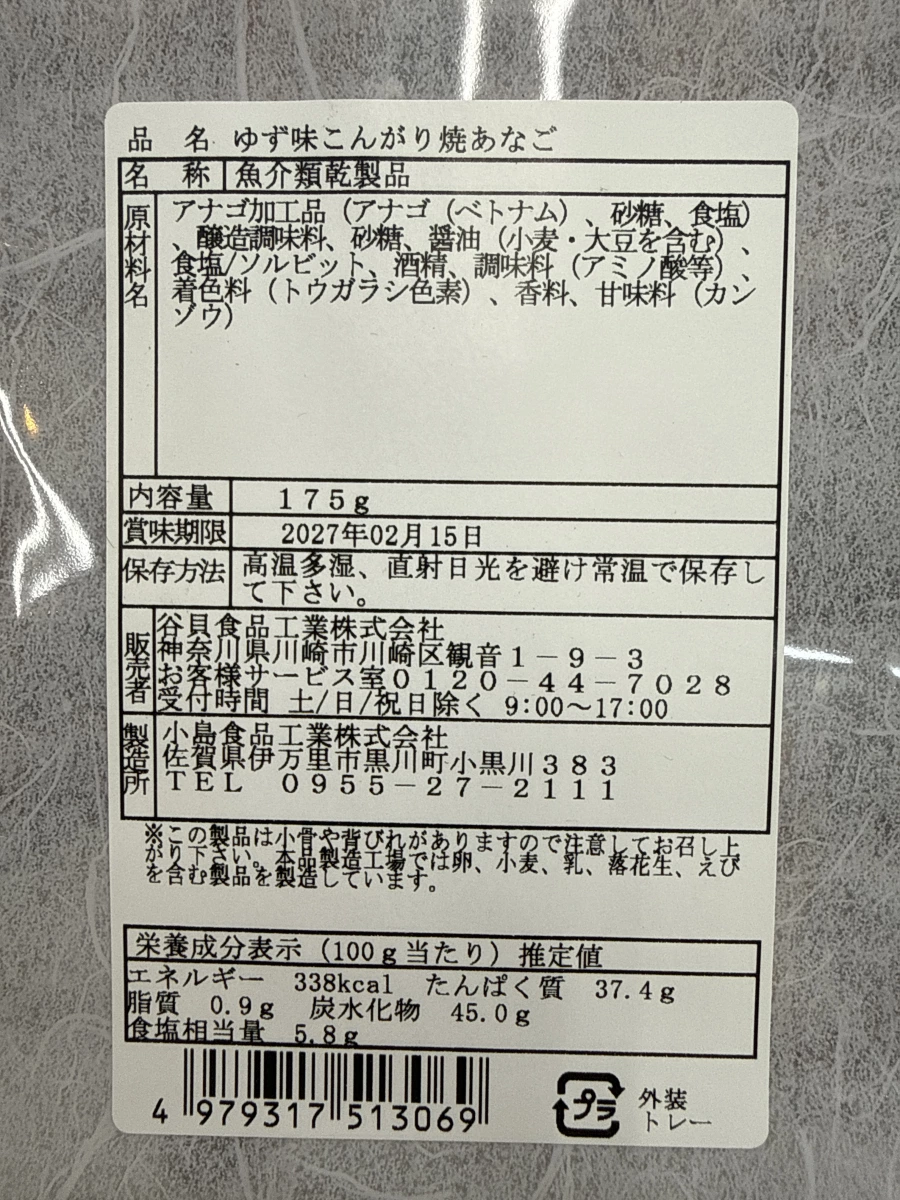 品 名 ゆず味こんがり焼あなご
名 称 魚介類乾製品
原材料名
アナゴ加工品（アナゴ（ベトナム）、砂糖、食塩）
、醸造調味料、砂糖、醤油（小麦・大豆を含む）、
食塩/ソルビット、酒精、調味料（アミノ酸等）、
着色料（トウガラシ色素）、香料、甘味料（カン
ゾウ）
内容量 １７５ｇ
賞味期限 2027年02月15日
保存方法 高温多湿、直射日光を避け常温で保存し
て下さい。
販売者
谷貝食品工業株式会社
神奈川県川崎市川崎区観音１－９－３
お客様サービス室０１２０－４４－７０２８
受付時間 土/日/祝日除く 9:00～17:00
製造所
小島食品工業株式会社
佐賀県伊万里市黒川町小黒川３８３
ＴＥＬ ０９５５－２７－２１１１
※この製品は小骨や背びれがありますので注意してお召し上
がり下さい。本品製造工場では卵、小麦、乳、落花生、えび
を含む製品を製造しています。
栄養成分表示（100ｇ当たり）推定値
エネルギー 338kcal たんぱく質 37.4ｇ
脂質 0.9ｇ 炭水化物 45.0ｇ
食塩相当量 5.8ｇ
4 979317 513069
プラ
外装
トレー